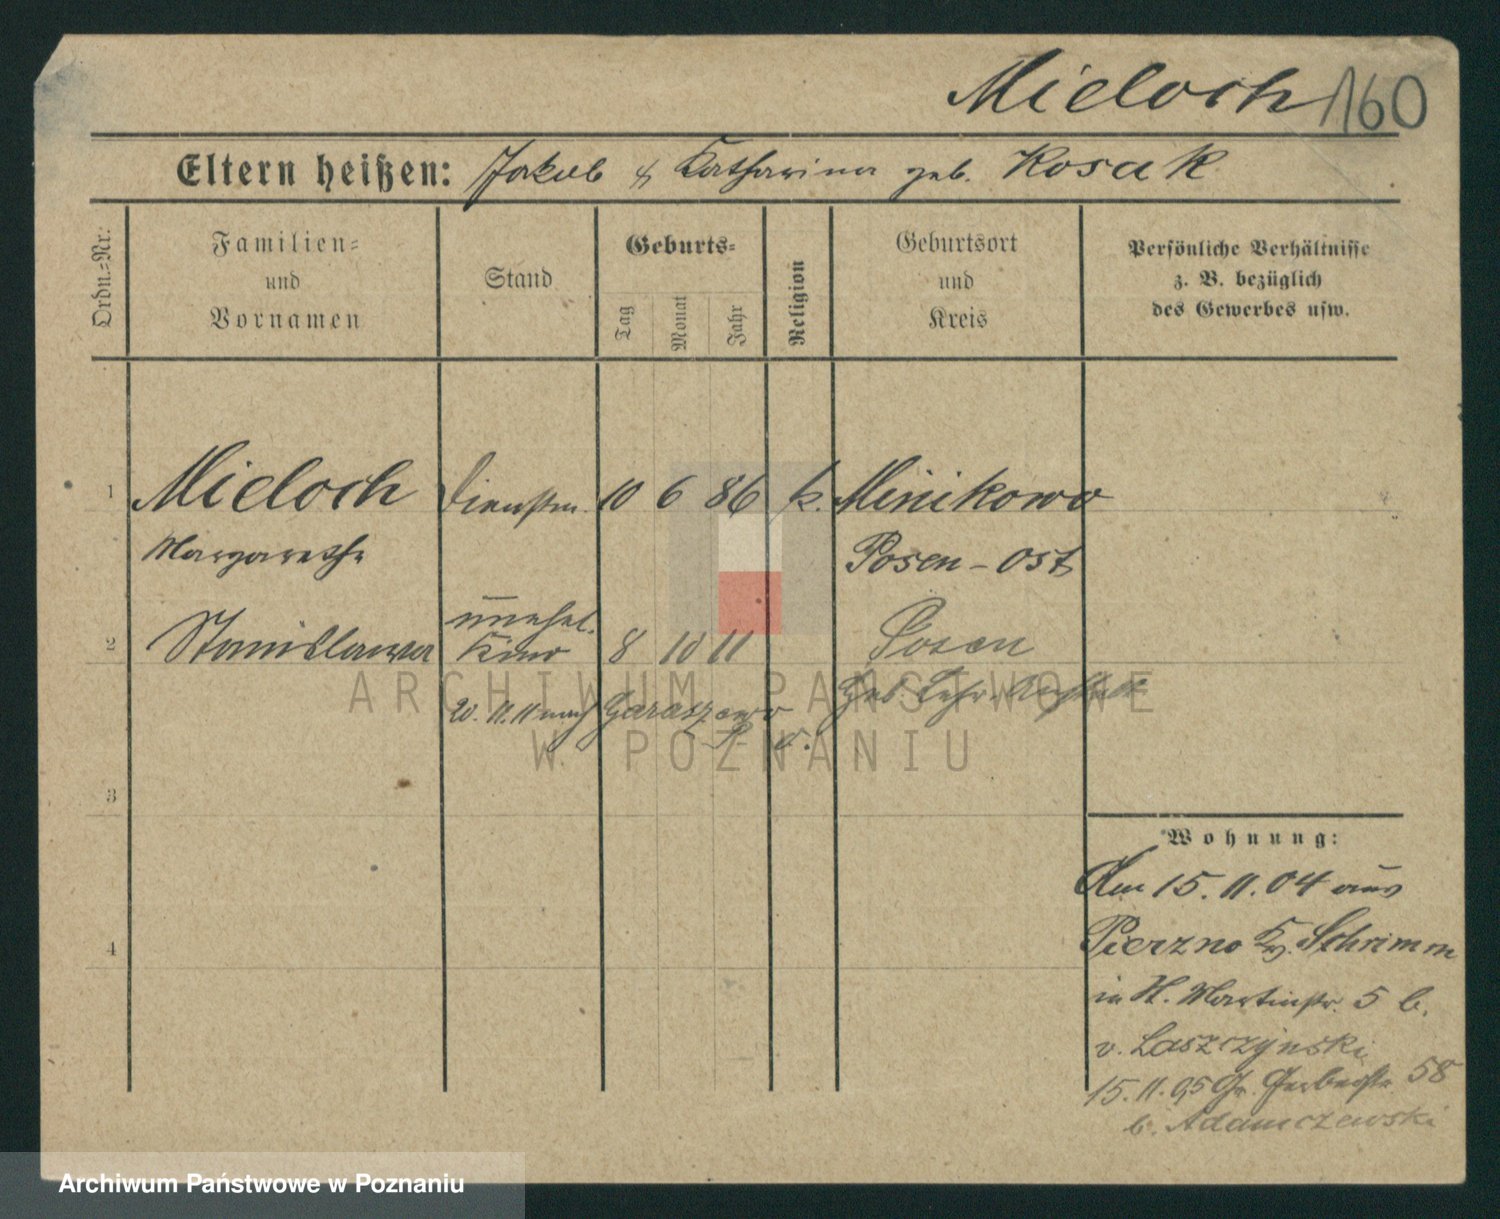 Mieloch 160
Eltern heißen: Jakub & Katharina geb. Kosak
Ordn.-Nr.:
Familien-
und
Vornamen
Stand
Geburts-
Tag
Monat
Jahr
Religion
Geburtsort
und
Kreis
Persönliche Verhältnisse
z. B. bezüglich
des Gewerbes usw.
1 Mieloch Dienstm. 10 6 86 k. Minikowo
Margarethe Posen-Ost
unehel.
2 Stanislawa Kind 8 10 11 Posen
Geb. Lehr-Anstalt
20. 11. 11 nach
ARCHIWUM PAŃSTWOWE
W POZNANIU
3
4
Wohnung:
Am 15. 11. 04 aus
Pierzno Kr. Schrimm
in St. Martinstr. 5 b.
v. Laszczynski
15. 11. 05 Gr. Gerberstr. 58
b. Adamczewski
Archiwum Państwowe w Poznaniu